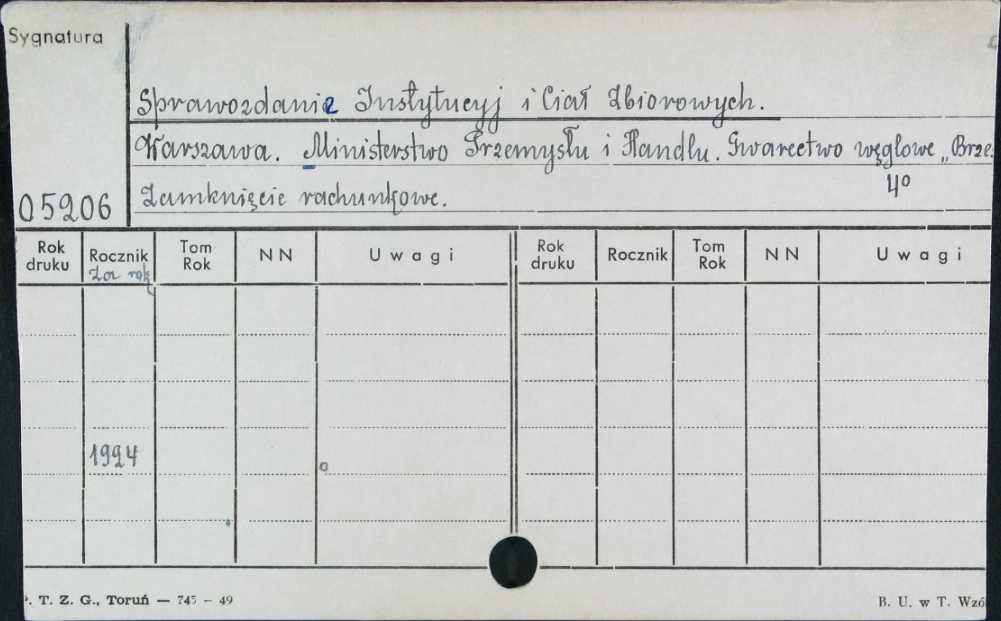 Sygnatura
Sprawozdanie Instytucyj i Ciał Zbiorowych.
Warszawa. Ministerstwo Przemysłu i Handlu. Gwarectwo węglowe „Brze
4°
Zamknięcie rachunkowe.
05206
Rok druku Rocznik Tom Rok NN Uwagi Rok druku Rocznik Tom Rok NN Uwagi
Za rok
1924
. T. Z. G., Toruń — 745 – 49
B. U. w T. Wzó